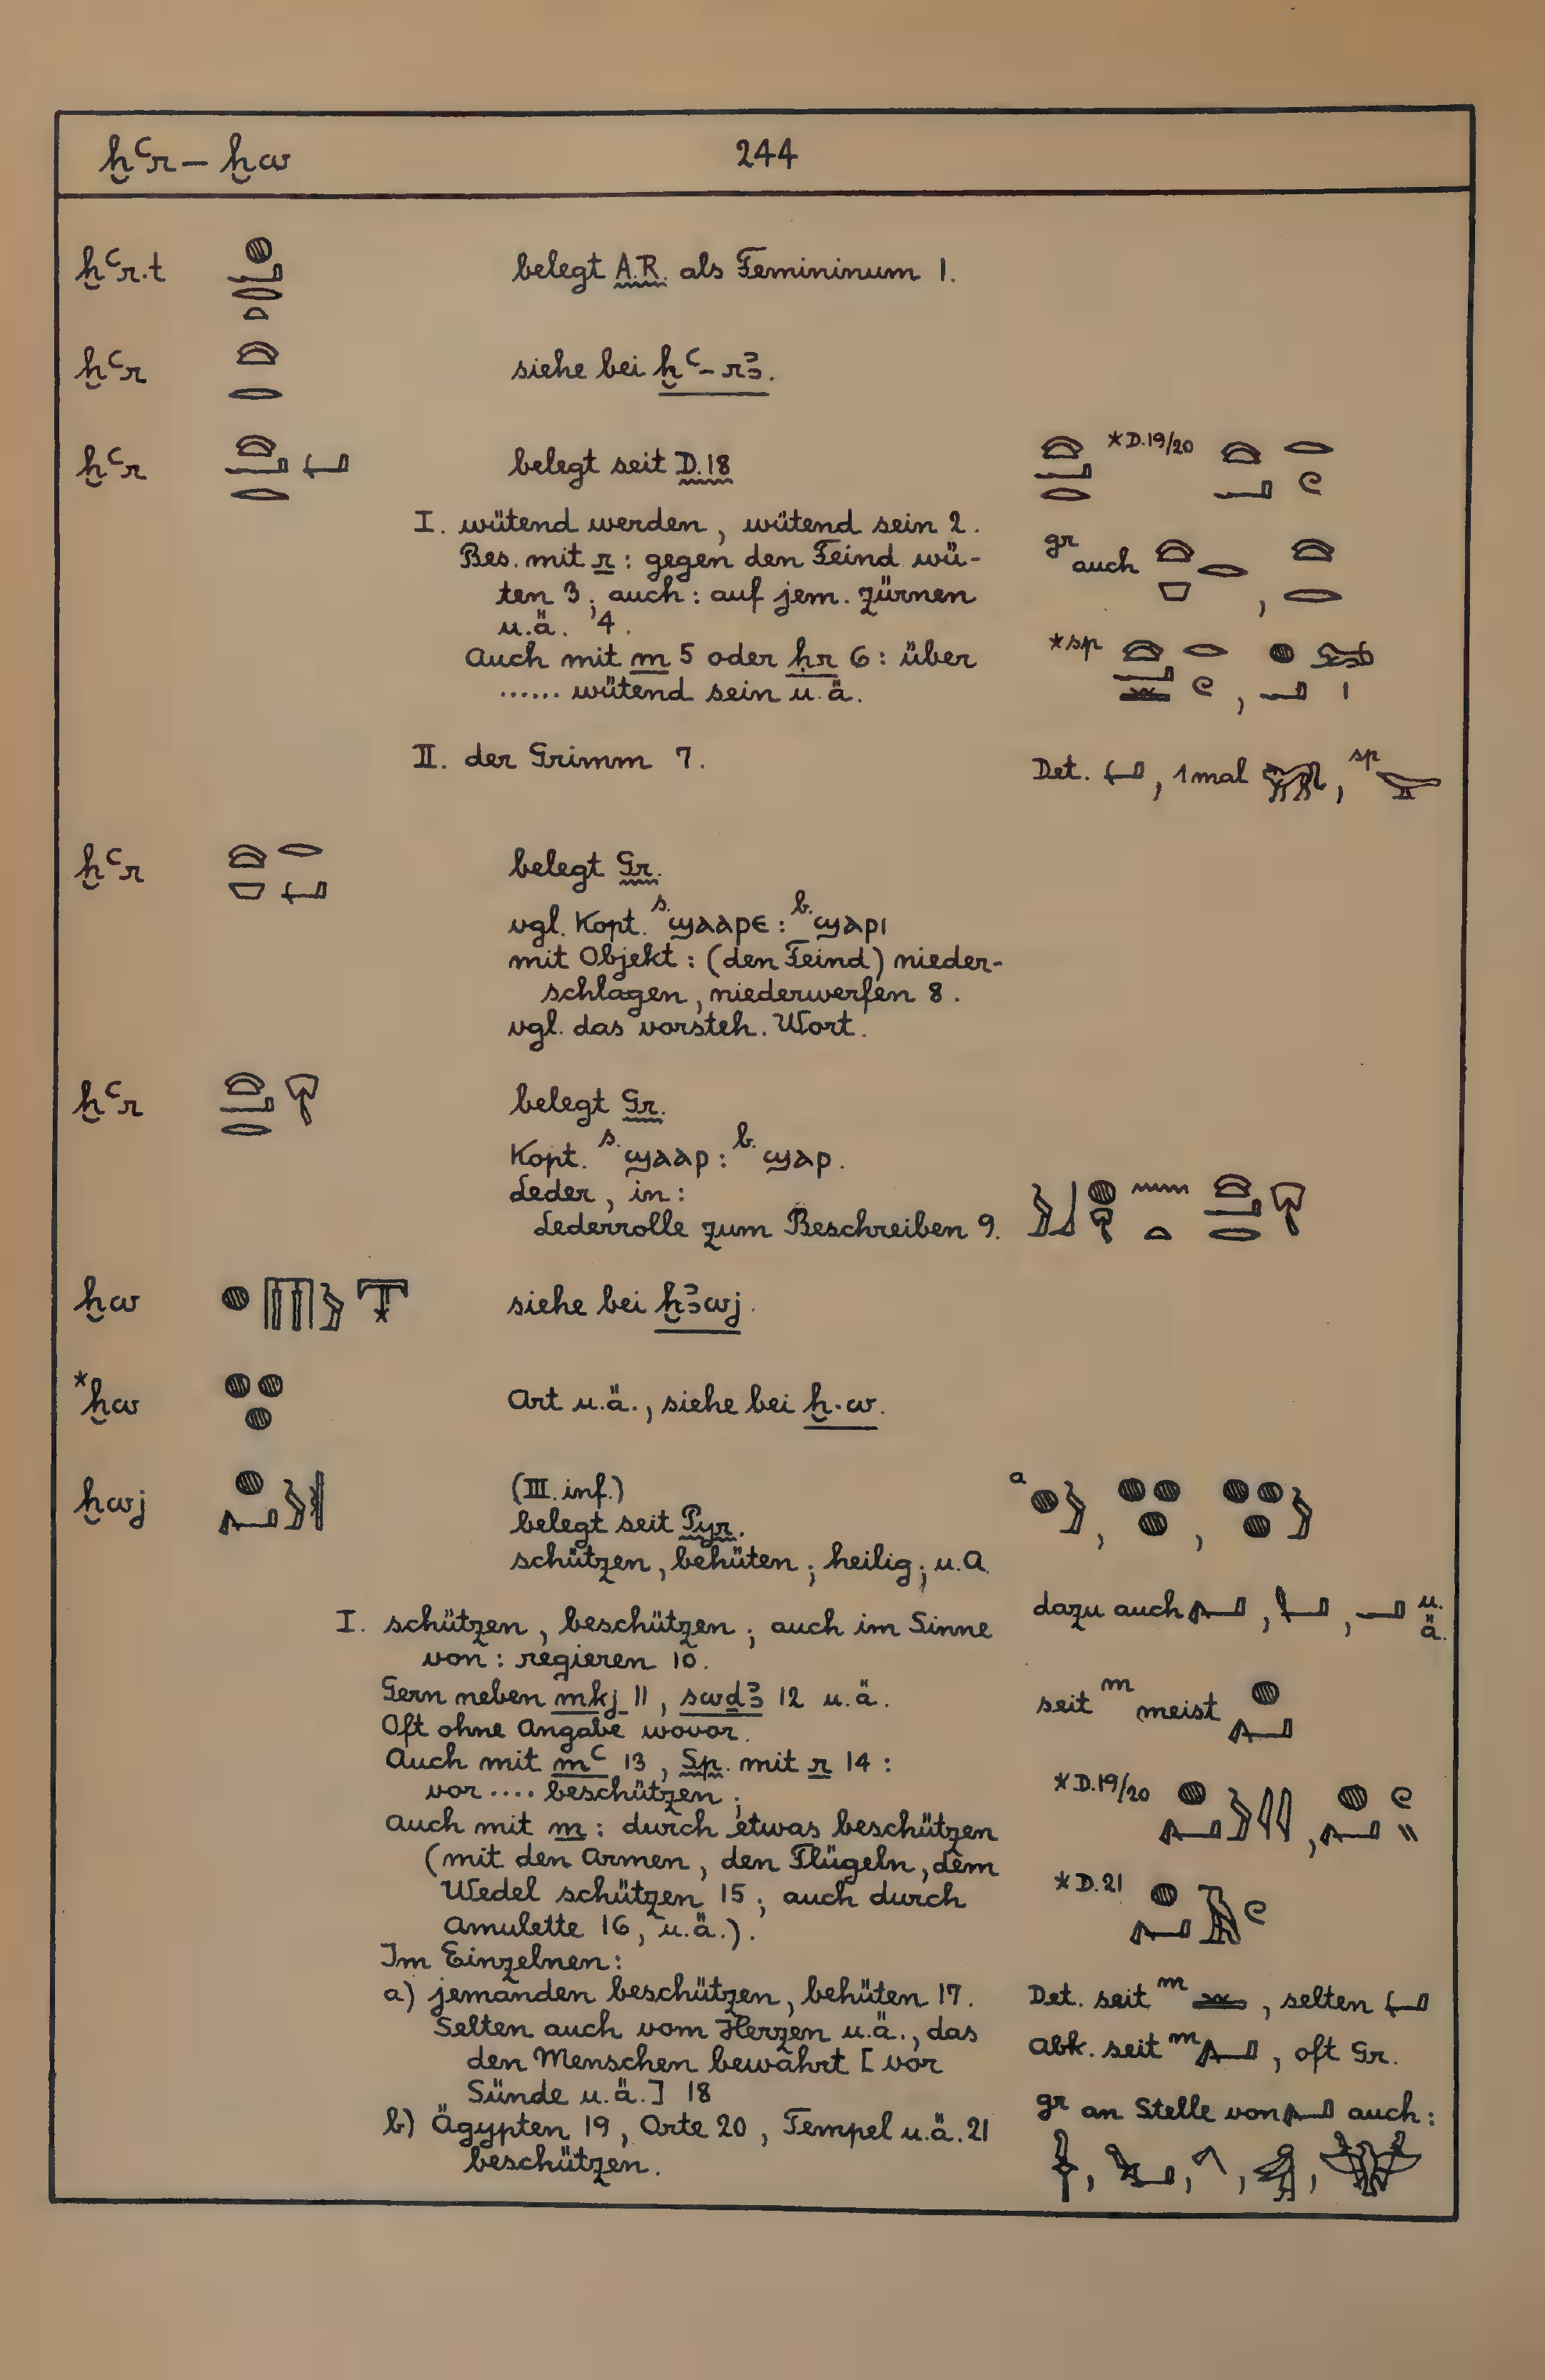 ḫꜥr – ḫw 244
ḫꜥr.t belegt A.R. als Femininum 1.
ḫꜥr siehe bei ḫꜥ-rꜣ.
ḫꜥr belegt seit D.18
I. wütend werden, wütend sein 2.
Bes. mit r: gegen den Feind wü-
ten 3; auch: auf jem. zürnen
u.ä. 4.
Auch mit m 5 oder ḥr 6: über
...... wütend sein u.ä.
II. der Grimm 7.
*D.19/20
gr auch ,
*sp ,
Det. , 1mal , sp
ḫꜥr belegt Gr.
vgl. Kopt. s. ϣⲁⲁⲣⲉ: b. ϣⲁⲣⲓ
mit Objekt: (den Feind) nieder-
schlagen, niederwerfen 8.
vgl. das vorsteh. Wort.
ḫꜥr belegt Gr.
Kopt. s. ϣⲁⲁⲣ: b. ϣⲁⲣ.
Leder, in:
Lederrolle zum Beschreiben 9.
ḫw siehe bei ḫꜣwj.
*ḫw Art u.ä., siehe bei ḫ.w.
ḫwj (III. inf.)
belegt seit Pyr.
schützen, behüten; heilig; u.A.
I. schützen, beschützen; auch im Sinne
von: regieren 10.
Gern neben mkj 11, swḏꜣ 12 u.ä.
Oft ohne Angabe wovor.
Auch mit mꜥ 13, Sp. mit r 14:
vor .... beschützen;
Auch mit m: durch etwas beschützen
(mit den Armen, den Flügeln, dem
Wedel schützen 15; auch durch
Amulette 16, u.ä.).
Im Einzelnen:
a) jemanden beschützen, behüten 17.
Selten auch vom Herzen u.ä., das
den Menschen bewahrt [vor
Sünde u.ä.] 18
b) Ägypten 19, Orte 20, Tempel u.ä. 21
beschützen.
a , ,
dazu auch , , u.ä.
seit m meist
*D.19/20 ,
*D.21
Det. seit m , selten
Abk. seit m , oft Gr.
gr an Stelle von auch:
, , , ,